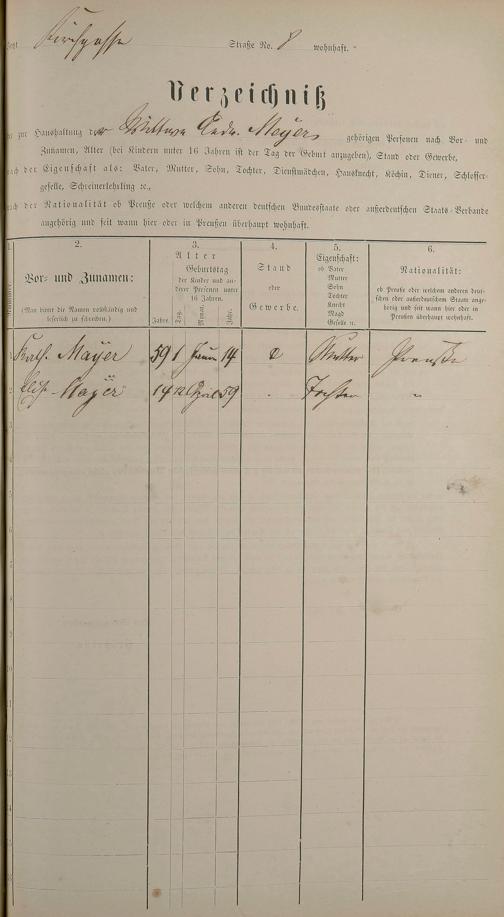 Kirchgasse Straße No. 8 wohnhaft.
Verzeichniß
zur Haushaltung der Wittwe Meyer gehörigen Personen nach Vor- und
Zunamen, Alter (bei Kindern unter 16 Jahren ist der Tag der Geburt anzugeben), Stand oder Gewerbe,
nach der Eigenschaft als: Vater, Mutter, Sohn, Tochter, Dienstmädchen, Hausknecht, Köchin, Diener, Schlosser-
geselle, Schreinerlehrling ꝛc.,
nach der Nationalität ob Preuße oder welchem anderen deutschen Bundesstaate oder außerdeutschen Staats-Verbande
angehörig und seit wann hier oder in Preußen überhaupt wohnhaft.
1. 2. 3. 4. 5. 6.
Nummer.
Vor- und Zunamen:
(Man bittet die Namen vollständig und
leserlich zu schreiben.)
Alter
Geburtstag
der Kinder und an-
derer Personen unter
16 Jahren.
Jahre. Tag. Monat. Jahr.
Stand
oder
Gewerbe.
Eigenschaft:
ob Vater
Mutter
Sohn
Tochter
Knecht
Magd
Geselle u.
Nationalität:
ob Preuße oder welchem anderen deut-
schen oder außerdeutschen Staate ange-
hörig und seit wann hier oder in
Preußen überhaupt wohnhaft.
1 Kath. Mayer 59 1 14 Mutter Preuße
2 Elis. Mayer 14 12 April 59 Tochter "